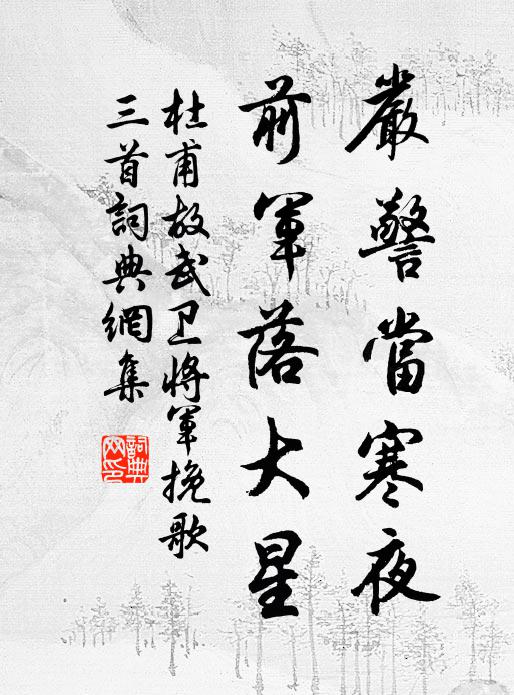 嚴警當寒夜
前軍落大星
杜甫故武卫將軍挽歌
三首詞典網集
詞典网印